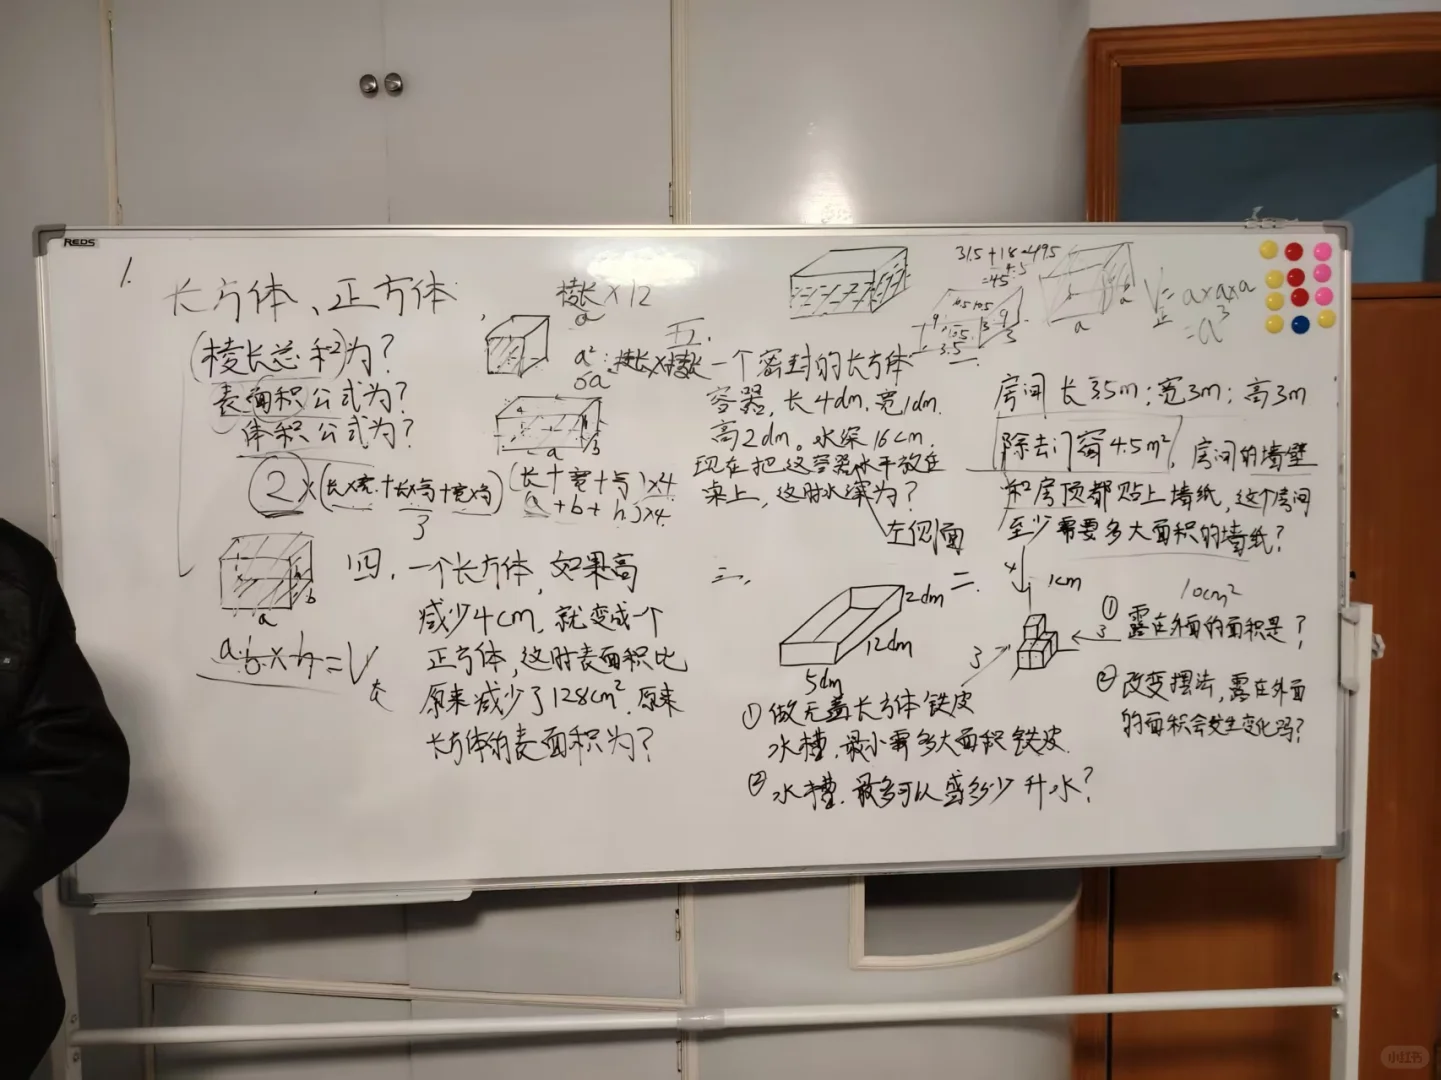 REDS
1.
长方体、正方体
(棱长总和)为?
表面积公式为?
体积公式为?
2×(长×宽+长×高+宽×高)
3
a
b
a·b×h=V长
棱长×12
a
a²:棱长×棱长
6a
a
b
(长+宽+高)×4
(a+b+h)×4
四、一个长方体,如果高
减少4cm,就变成一个
正方体,这时表面积比
原来减少了128cm².原来
长方体的表面积为?
五、
一个密封的长方体
容器,长4dm.宽1dm.
高2dm。水深16cm.
现在把这容器水平放在
桌上,这时水深为?
左侧面
31.5+18-4.95
4.5
=45
10.5
10.5
9
9
3
3
3.5
a
a
V正=a×a×a
=a³
房间长3.5m;宽3m;高3m
除去门窗4.5m²,房间的墙壁
和房顶都贴上墙纸,这个房间
至少需要多大面积的墙纸?
三、
2dm
12dm
5dm
①做无盖长方体铁皮
水槽,最小需多大面积铁皮
②水槽,最多可以盛多少升水?
二、
4
1cm
3
3
10cm²
①露在外面的面积是?
②改变摆法,露在外面
的面积会发生变化吗?
小红书